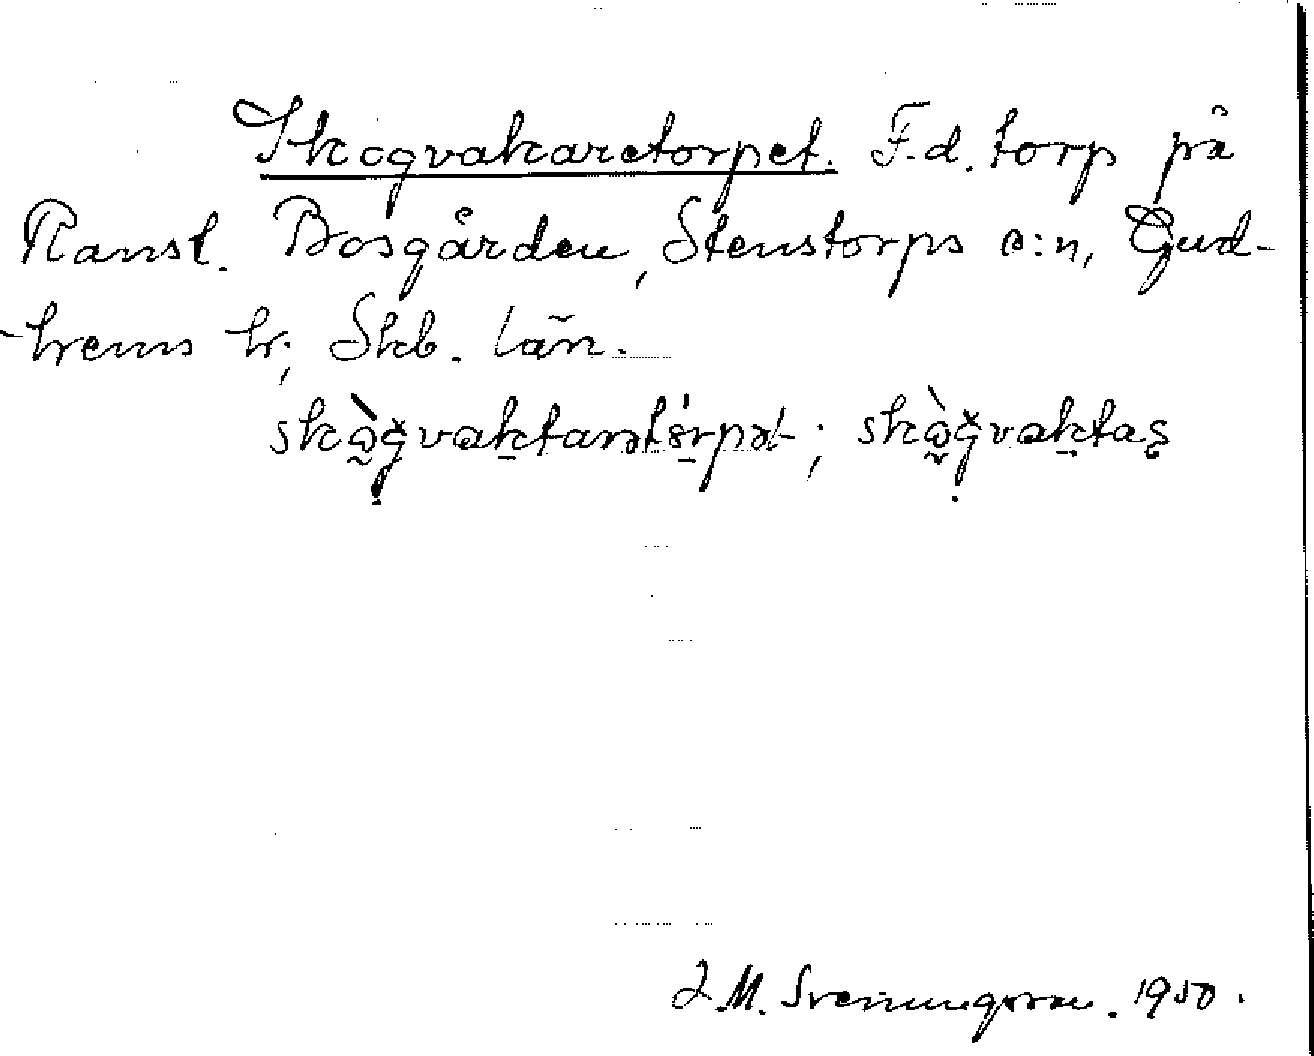 Skogvakaretorpet. F.d. torp på
Ransl. Bosgården, Stenstorps s:n, Gud-
hems hr, Skb. län.
skòǧvaktarətórpət; skòǧvaktas̨
J.M. Svenungsson. 1950.